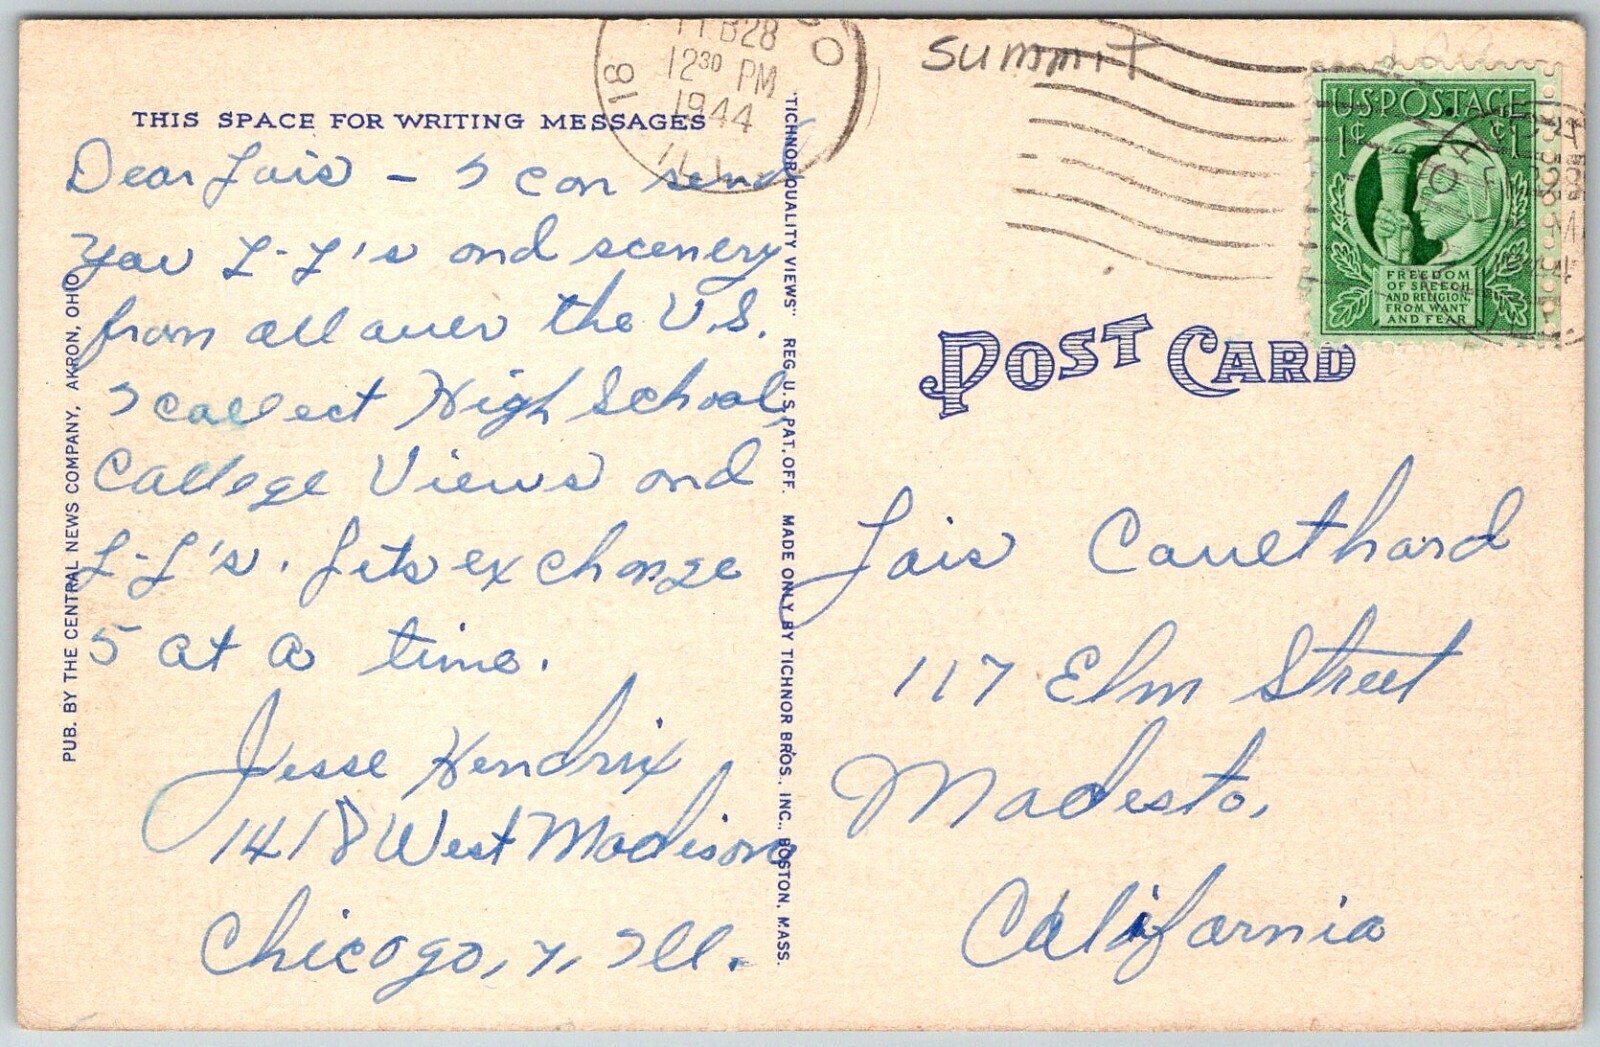 FEB 28
12 30 PM
1944
18
O
ILL
summit
THIS SPACE FOR WRITING MESSAGES
Dear Lois - I can send
you L-L's and scenery
from all over the U.S.
I collect High School,
College Views and
L-L's. Lets exchange
5 at a time.
Jesse Hendrix
1418 West Madison
Chicago, 7, Ill.
PUB. BY THE CENTRAL NEWS COMPANY, AKRON, OHIO
"TICHNOR QUALITY VIEWS" REG. U.S. PAT. OFF. MADE ONLY BY TICHNOR BROS., INC., BOSTON, MASS.
U.S. POSTAGE
1¢ ¢1
FREEDOM
OF SPEECH
AND RELIGION,
FROM WANT
AND FEAR
POST CARD
Lois Cauethard
117 Elm Street
Modesto,
California